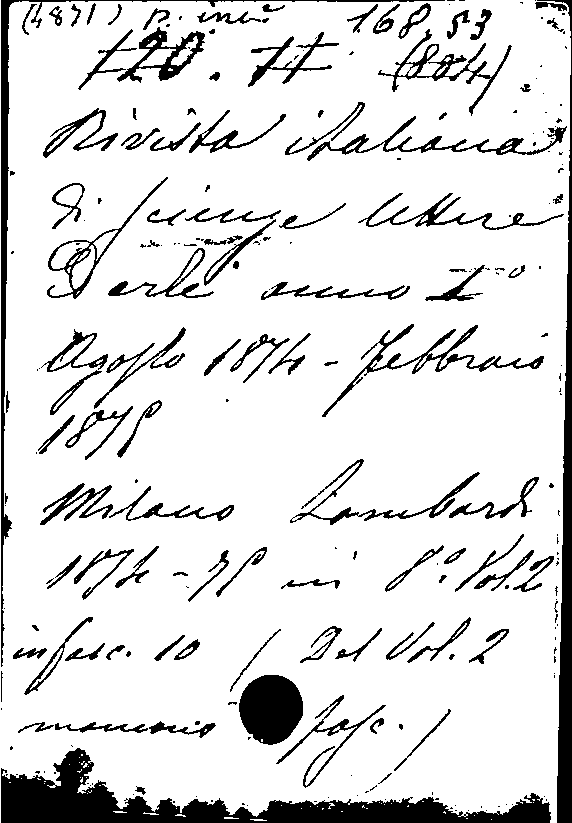 (4871) p. inv. 168.53
120. II (804)
Rivista italiana
di scienze lettere
ed arti anno I°
Agosto 1874 - Febbraio
1875
Milano Lombardi
1874-75 in 8°. Vol. 2
in fasc. 10 / Del Vol. 2
mancano fasc. /